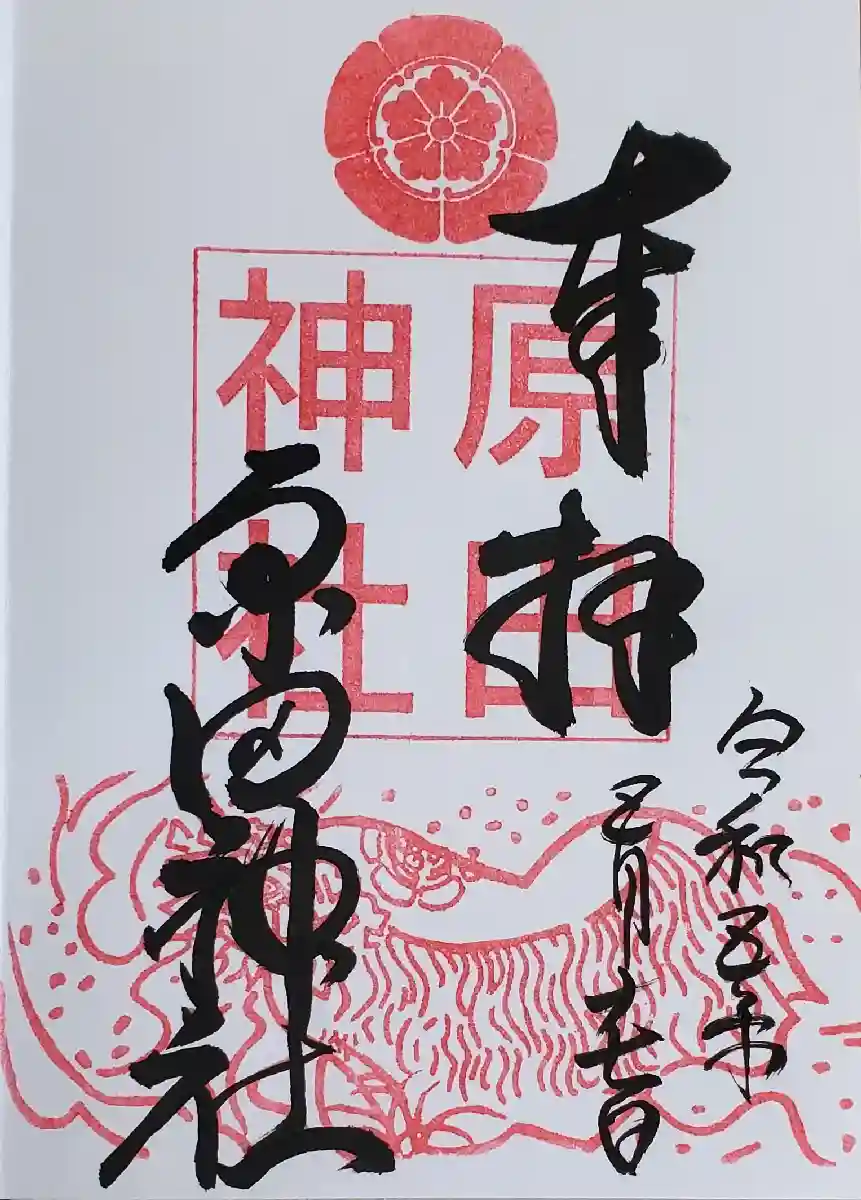 令和五年
五月日
奉拝
原田
神社
原田神社